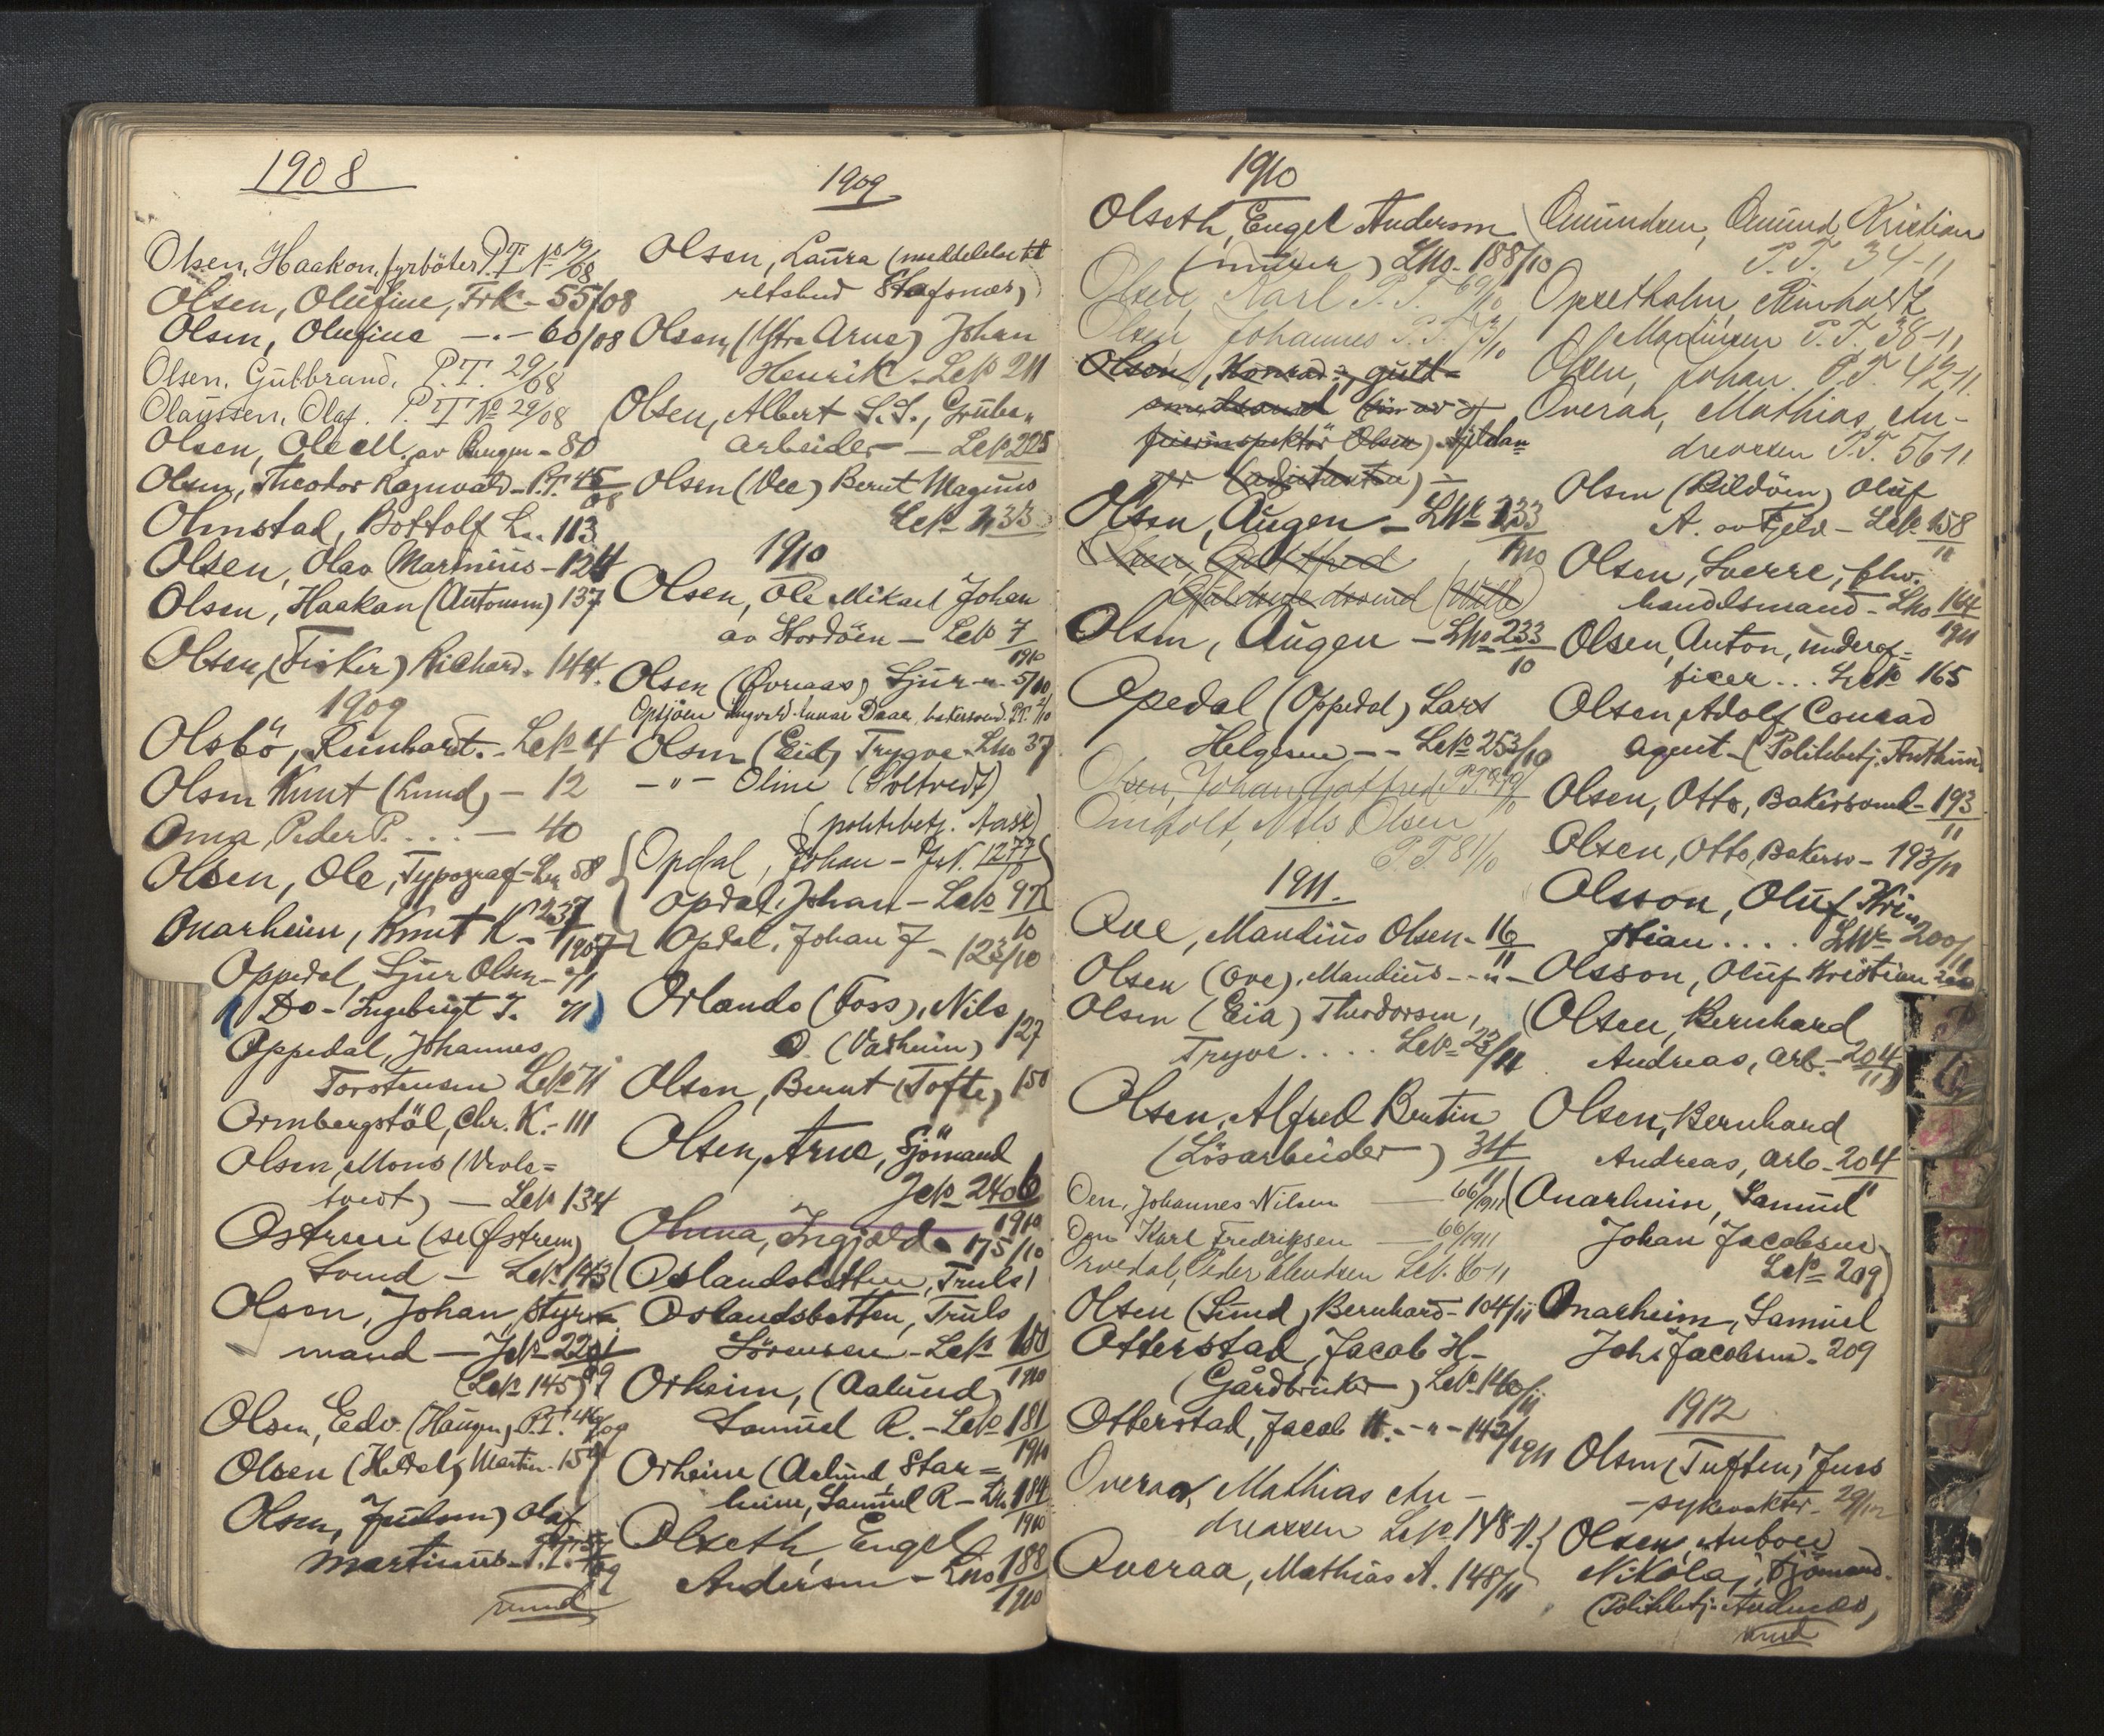 1908
Olsen, Haakon, fyrböter P.T. No 19/08
Olsen, Olufine, Frk - 55/08
Olsen, Olufine - . - 60/08
Olsen, Gutbrand, P.T. 29/08
Olaussen, Olaf. P.T. No 29/08
Olsen, Ole M. av - 80
Olsen, Theodor Ragnvald - P.T. 45/08
Olmstad, Bottolf L. . 113
Olsen, Olav Marinius - 124
Olsen, Haakon (Antonsen) 137
Olsen, (Fisker) Richard. 144.
1909
Olsbö, Reinhardt. - Lek 4
Olsen Knut (Knud) - 12
Oma, Peder P. . . . - 40
Olsen, Ole, Typograf - 58
Onarheim, Knut K - 237/1907
Oppedal, Sjur Olsen - 71
Do - Ingebrigt J. 71
Oppedal, Johannes
Torstensen Lek 71
Ormbergstöl, Chr. K. - 111
Olsen, Mons (Vivle=
tvedt) - Lek 134
Ostrem (se Østrem)
Svend - Lek 143
Olsen, Johan, styr=
mand -
(Lek 145)
Olsen, Edv. (Haugen) P.T. 46/09
Olsen (Hetdal) Martin - 159
Olsen, Olaf
Martinius - P.T.
vend
1909
Olsen, Laura (meddelelse til
retsbud Stafsnæs)
Olsen, (Ytre Arna) Johan
Henrik - Lek 211
Olsen, Albert S.S., Grube=
arbeider - Lek 225
Olsen (Vee) Bernt Magnus
Lek 233
1910
Olsen, Ole Mikael Johan
av Stordöen - Lek 7/1910
Olsen (Øvreaas) Sjur - " - 5/10
Olsen (Eid) Trygve - 37
- " - Oline (Soltvedt)
(politibetj. Aase)
Opdal, Johan - 
Opdal, Johan - Lek 97/10
Opdal, Johan J - 123/10
Orlando (Foss), Nils
O. (Vadheim) 127
Olsen, Bernt (Tofte) 150
Olsen, Arne, Sjömand
240
1910
Ohma, Ingjald - 175/10
(Oslandsbotten, Truls)
Oslandsbotten, Truls
Sörensen - Lek 180/1910
Orheim, (Aalund)
Samuel R. - Lek 181/1910
Orheim (Aalund, Star=
heim, Samuel R - 184/1910
Olseth, Engel
Andersen - 188/1910
1910
Olseth, Engel Andersen
(murer) 188/10
Olsen, Karl P.T. 69/10
Olsen, Johannes P.T. 73/10
Olsen, Konrad, guld=
smedsvend (sön av
feierinspektör Olsen)
Olsen, Augen - 233/1910
Olsen, Gottfred
Olsen, Augen - 233/10
Opedal (Oppedal) Lars
Helgesen - - Lek 253/10
Olsen, Johan Gotfred P.T.
Nils Olsen
P.T. 81/10
1911.
Ove, Mandius Olsen - 16/11
Olsen (Ove), Mandius - - " -
Olsen (Eia) Theodorsen,
Trygve . . . . Lek 23/11
Olsen, Alfred Bentin
(Lösarbeider) 34/11
Oen, Johannes Nilsen - 66/1911
Oen Karl Fredriksen - 66/1911
Peder Lek. 86/11
Olsen (Sund) Bernhard - 104/11
Otterstad, Jacob H -
(Gårdbruker) Lek 140/11
Otterstad, Jacob H. - " - 143/1911
Overaa, Mathias An-
dreassen Lek 148-11.
Overaa, Mathias A. 148/11
Omundsen, Omund Kristian
P.T. 34-11
Opsetholm, Reinholdt
P.T. 38-11
Olsen, Johan. P.T. 42-11.
Overaa, Mathias An-
dreassen P.T. 56-11
Olsen (Rildöen) Oluf
A. av Fjeld - Lek 158/11
Olsen, Sverre, fhv.
handelsmand - 164/1911
Olsen, Anton, underof=
ficer . . . Lek 165
Olsen, Adolf Conrad
agent - (Politibetj.
Olsen, Otto, Bakersvend - 193/11
Olsen, Otto, Bakersv - 193/11
Olsson, Oluf Kri=
stian . . . . 200/11
Olsson, Oluf Kristian 200
(Olsen, Bernhard
Andreas, arb. - 204/11)
Olsen, Bernhard
Andreas, arb - 204/11
(Onarheim, Samuel
Johan Jacobsen
Lek 209)
Onarheim, Samuel
Joh. Jacobsen - 209
1912
Olsen (Tuften) Jens
- sykevakter - 29/12
Olsen,
Nikolai, Sjömand.
(Politibetj. Andnæs)
vend